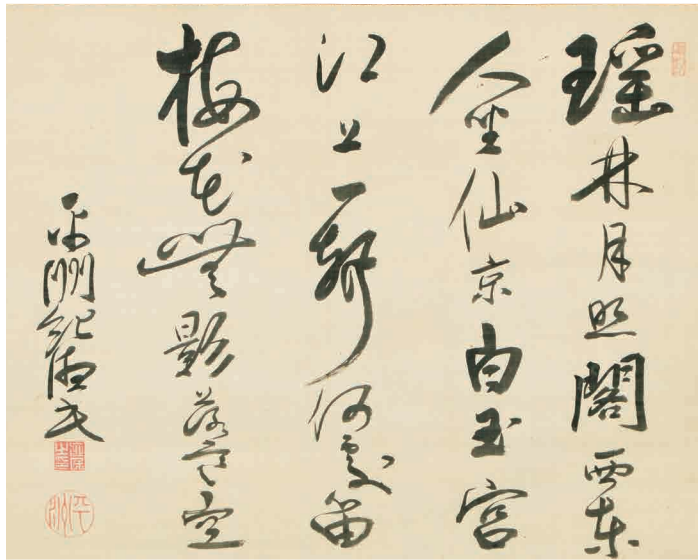 瑶林月照閣西東
人坐仙京白玉宮
江上一聲何處笛
梅花無影落寒空
平洲紀德民